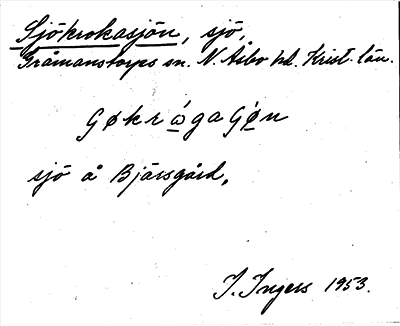 Sjökrokasjön, sjö,
Gråmanstorps sn. N. Åsbo hd. Krist. län.
Gøkrògagǿn
sjö å Bjärsgård,
I. Ingers 1953.